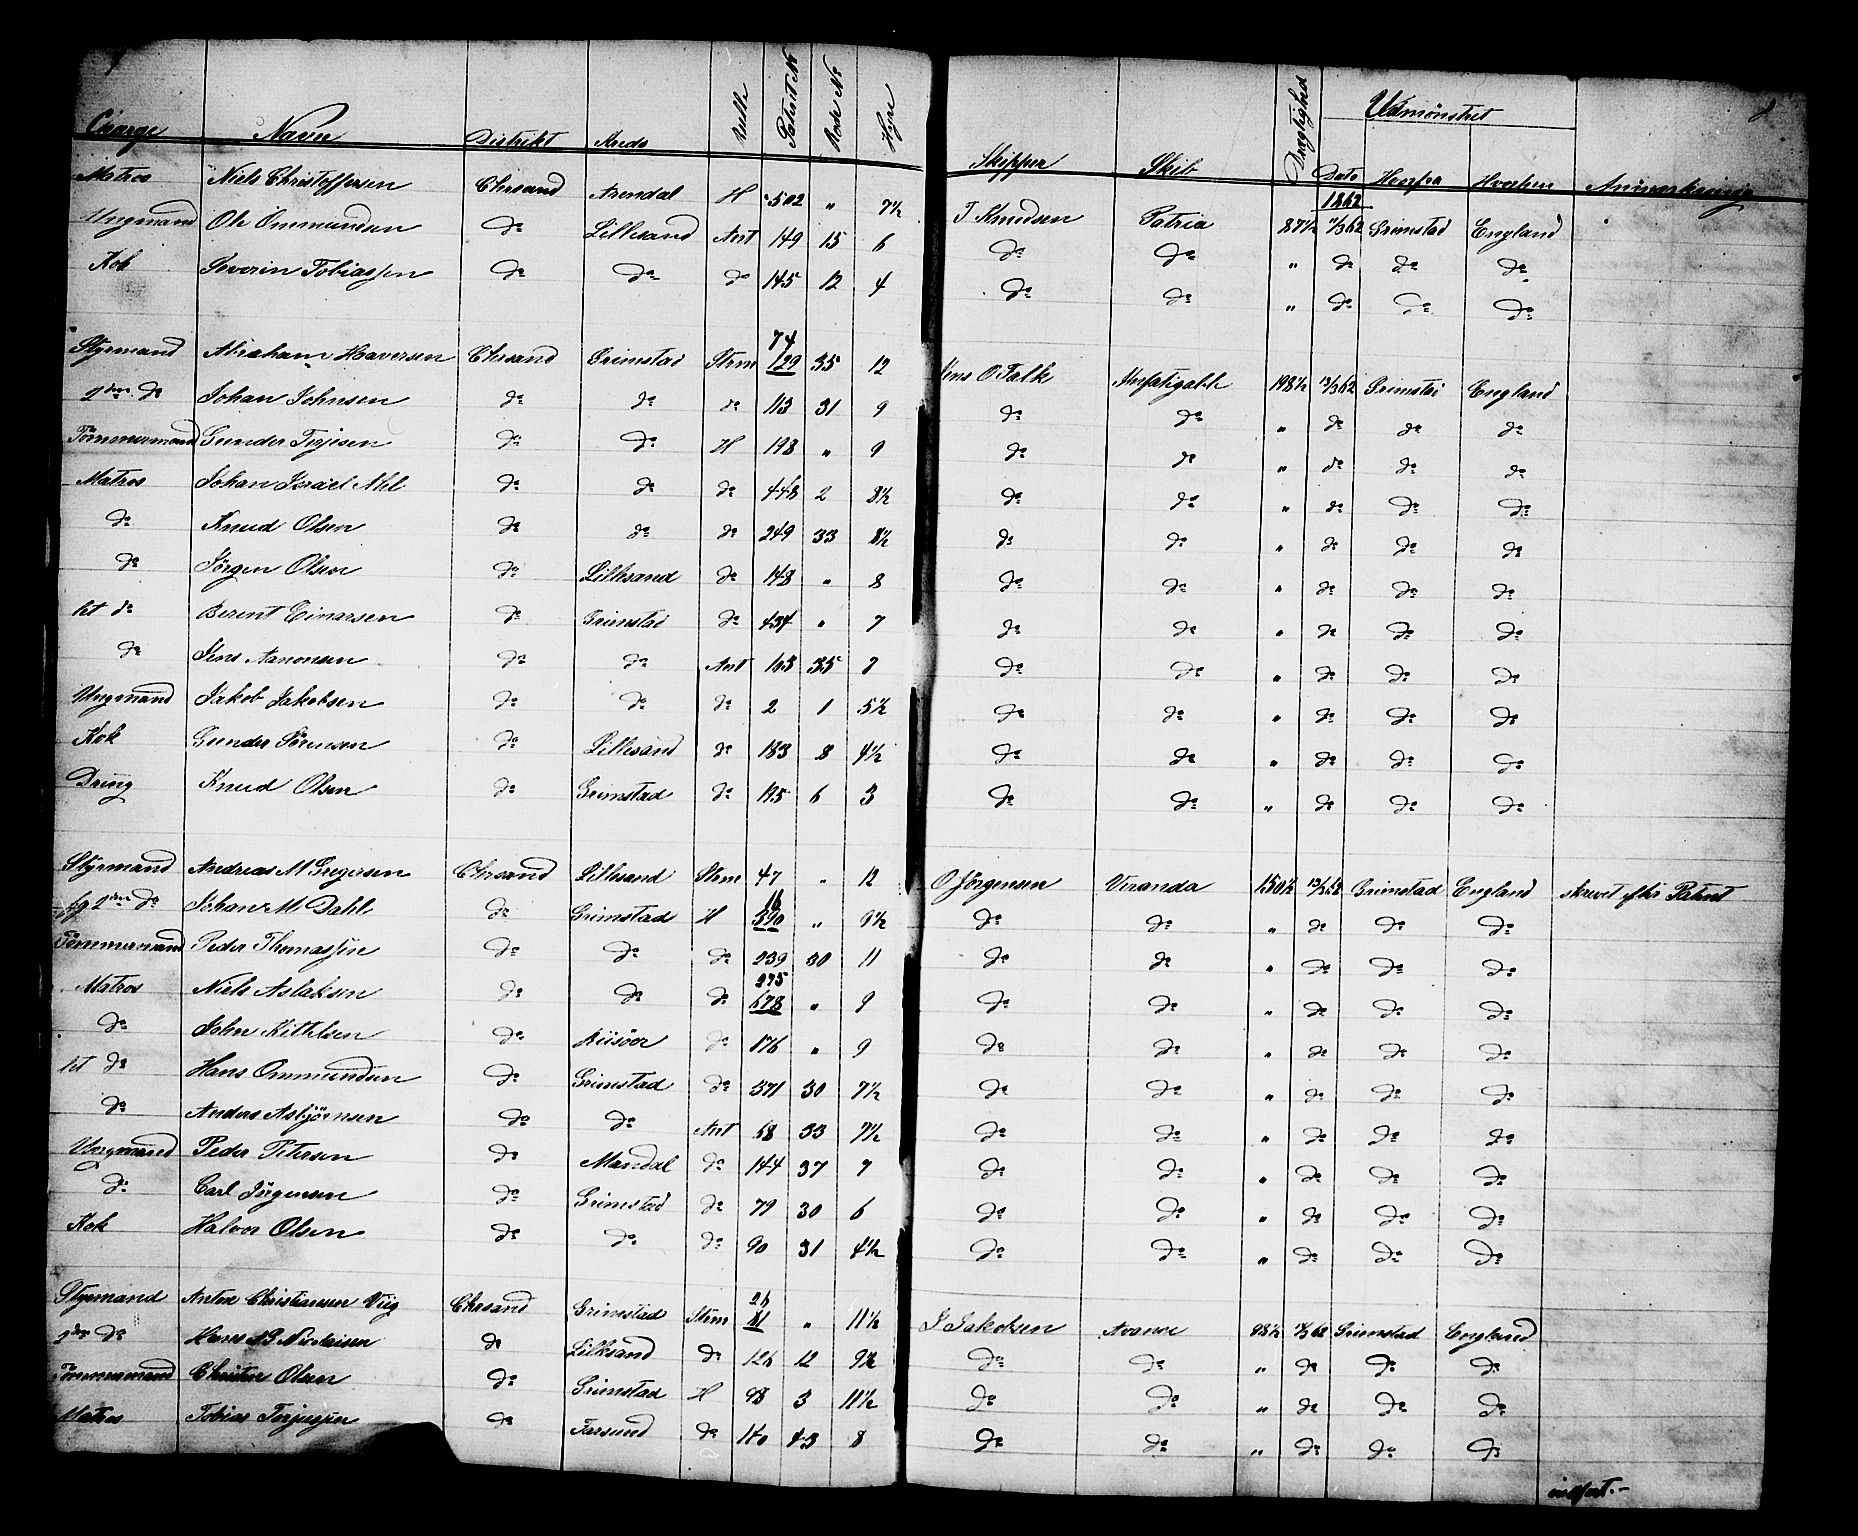 Charge Navn Distrikt Kreds Rulle Patent No Rode No Hyre Skipper Skib Drægtighed Udmønstret Dato Herfra Hvorhen Anmærkning
1862
Matros Niels Christoffersen Chrsand Arendal H 502 " 7½ T Knudsen Patria 87½ 11/3 62 Grimstad England
Ungmand Ole Ommundsen do Lillesand Ant 149 15 6 do do " do do do
Kok Severin Tobiassen do do do 145 12 4 do do " do do do
Styrmand Abraham Haaversen Chrsand Grimstad Strm 74 129 35 12 Jens O Falk Unfatigable 198½ 13/3 62 Grimstad England
2den do Johan Johnsen do do do 113 31 9 do do " do do do
Tømmermand Gunder Terjesen do do H 198 " 9 do do " do do do
Matros Johan Israel Ahl do do do 448 2 8½ do do " do do do
do Knud Olsen do do do 249 33 8½ do do " do do do
do Jörgen Olsen do Lillesand do 148 " 8 do do " do do do
let do Berent Einarsen do Grimstad do 434 " 7 do do " do do do
do Jens Aanonsen do do Ant 103 35 7 do do " do do do
Ungmand Jakob Jakobsen do do do 2 1 5½ do do " do do do
Kok Gunder Sörensen do Lillesand do 183 8 4½ do do " do do do
Dreng Knud Olsen do Grimstad do 195 6 3 do do " do do do
Styrmand Andreas M Gregersen Chrsand Lillesand Strm 47 " 12 O Jörgensen Veranda 150½ 13/3 62 Grimstad England skrevet efter Patent
fg 2den do Johan M Dahl do Grimstad H 16 390 " 9½ do do " do do do
Tømmermand Peder Thomassen do do do 239 30 11 do do " do do do
Matros Niels Aslaksen do do do 275 678 " 9 do do " do do do
do John Kittelsen do Riisöer do 176 " 9 do do " do do do
let do Hans Ommundsen do Grimstad do 371 30 7½ do do " do do do
do Anders Asbjörnsen do do Ant 68 33 7½ do do " do do do
Ungmand Peder Petersen do Mandal do 144 37 7 do do " do do do
do Carl Jörgensen do Grimstad do 79 30 6 do do " do do do
Kok Halvor Olsen do do do 90 31 4½ do do " do do do
Styrmand Anton Christiansen Viig Chrsand Grimstad Strm 26 81 " 11½ J Jakobsen Avance 98½ 62 Grimstad England
2den do Hans Nicolaisen do Lillesand do 126 12 9½ do do " do do do
Tømmermand Christen Olsen do Grimstad H 98 3 11½ do do " do do do
Matros Tobias Terjesen do Farsund do 43 8 do do " do do do